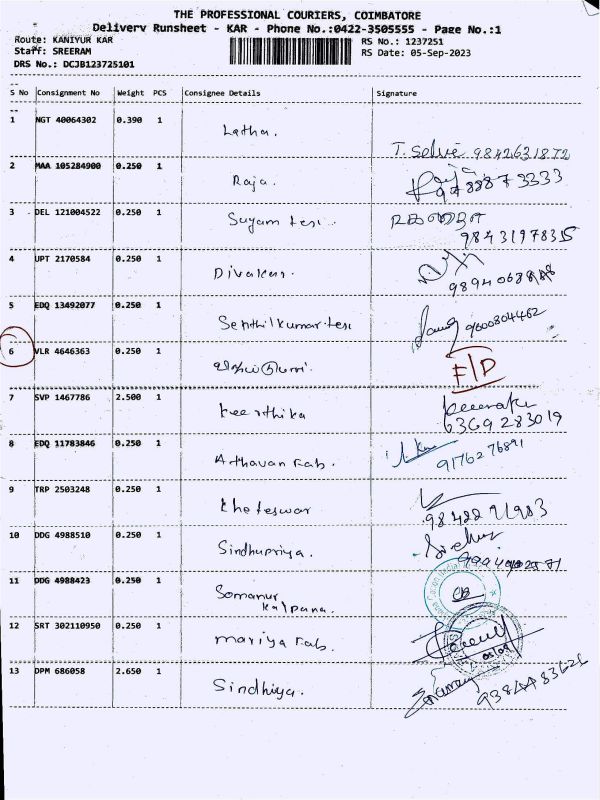 THE PROFESSIONAL COURIERS, COIMBATORE
Delivery Runsheet - KAR - Phone No.:0422-3505555 - Page No.:1
Route: KANIYUR KAR
RS No.: 1237251
Staff: SREERAM
RS Date: 05-Sep-2023
DRS No.: DCJB123725101
S No Consignment No Weight PCS Consignee Details Signature
1 NGT 40064302 0.390 1 Latha.
T. Selvi 9842631872
2 MAA 105284900 0.250 1 Raja.
9788873333
3 DEL 121004522 0.250 1 Suyam tesi.
9843197835
4 UPT 2170584 0.250 1 Divakar.
5 EDQ 13492077 0.250 1 Senthilkumar.tesi
9600304462
6 VLR 4646363 0.250 1
F/D
7 SVP 1467786 2.500 1 keerthika
6369283019
8 EDQ 11783846 0.250 1 Athavan Fab.
9176276891
9 TRP 2503248 0.250 1 kheteswar
9842291983
10 DDG 4988510 0.250 1 Sindhupriya.
11 DDG 4988423 0.250 1 Somanur
kalpana.
12 SRT 302110950 0.250 1 mariya Fab.
13 DPM 686058 2.650 1 Sindhiya.